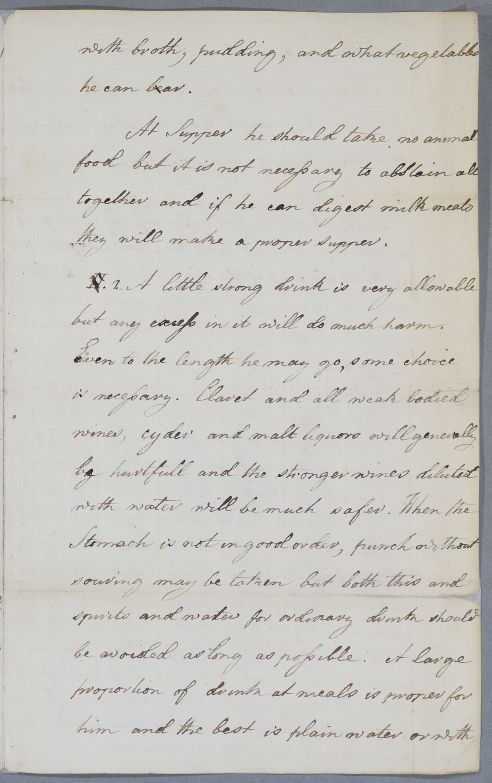 with broth, pudding, and what vegetables
he can bear.
At Supper he should take no animal
food but it is not necessary to abstain all
together and if he can digest milk meals
they will make a proper supper.
N. 2. A little strong drink is very allowable
but any excess in it will do much harm.
Even to the length he may go, some choice
is necessary. Claret and all weak bodied
wines, cyder and malt liquors will generally
be hurtfull and the stronger wines diluted
with water will be much safer. When the
Stomach is not in good order, punch without
souring may be taken but both this and
spirits and water for ordinary drink should
be avoided as long as possible. A large
proportion of drink at meals is proper for
him and the best is plain water or with